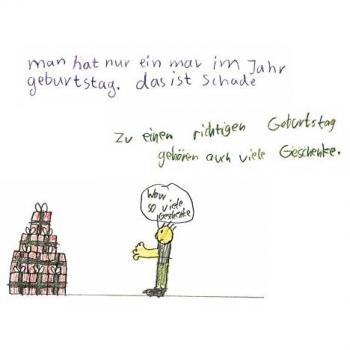 man hat nur ein mal im Jahr
geburtstag. das ist schade
Zu einen richtigen Geburtstag
gehören auch viele Geschenke.
Wow
so viele
Geschenke